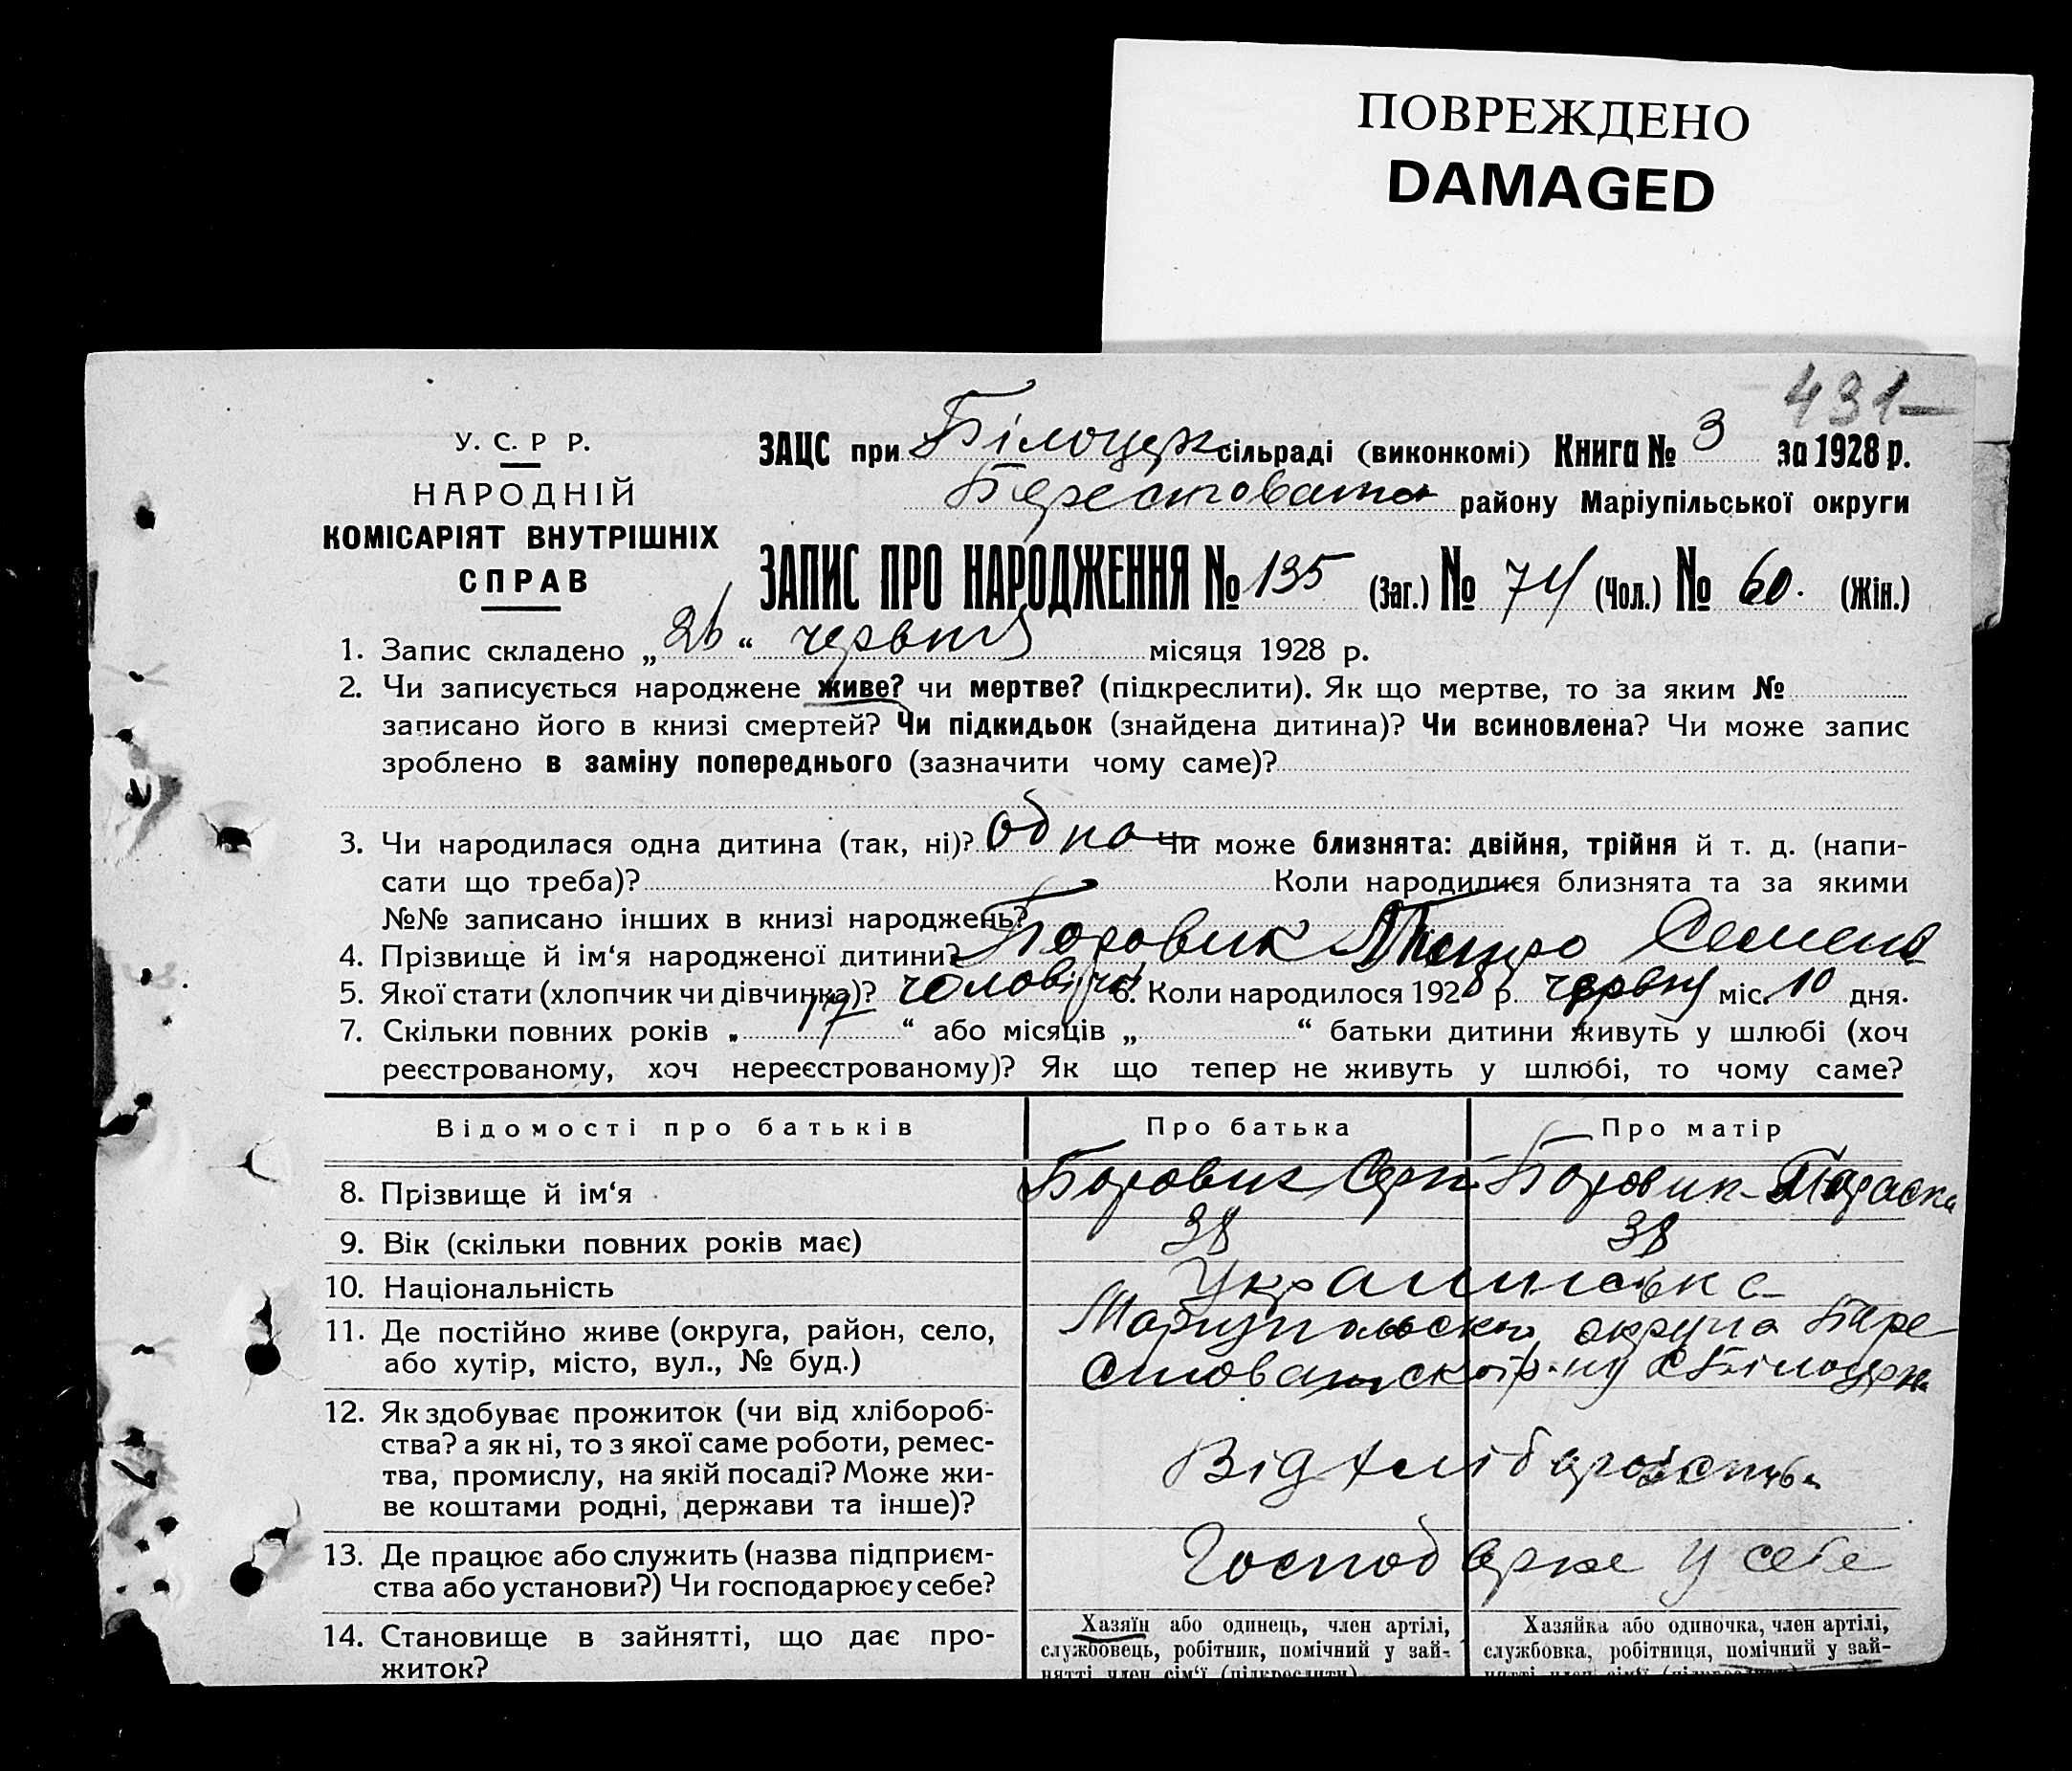 ПОВРЕЖДЕНО
DAMAGED
431
У. С. Р Р.
НАРОДНІЙ
КОМІСАРІЯТ ВНУТРІШНІХ
СПРАВ
ЗАЦС при Білоцерк сільраді (виконкомі) Книга № 3 за 1928 р.
району Маріупільської округи
ЗАПИС ПРО НАРОДЖЕННЯ № 135 (Заг.) № 74 (Чол.) № 60. (Жін.)
1. Запис складено „26“ червня місяця 1928 р.
2. Чи записується народжене живе? чи мертве? (підкреслити). Як що мертве, то за яким №
записано його в книзі смертей? Чи підкидьок (знайдена дитина)? Чи всиновлена? Чи може запис
зроблено в заміну попереднього (зазначити чому саме)?
3. Чи народилася одна дитина (так, ні)? одна Чи може близнята: двійня, трійня й т. д. (напи-
сати що треба)? Коли народилися близнята та за якими
№№ записано інших в книзі народжень?
4. Прізвище й ім‘я народженої дитини? Боровик Петро Семен
5. Якої стати (хлопчик чи дівчинка)? чоловічої 6. Коли народилося 1928 р. червня міс. 10 дня.
7. Скільки повних років „ “ або місяців „ “ батьки дитини живуть у шлюбі (хоч
реєстрованому, хоч нереєстрованому)? Як що тепер не живуть у шлюбі, то чому саме?
Відомості про батьків Про батька Про матір
8. Прізвище й ім‘я Боровик Боровик Параска
9. Вік (скільки повних років має) 38 38
10. Національність Украинська
11. Де постійно живе (округа, район, село, округа Бере
або хутір, місто, вул., № буд.) р-ну
12. Як здобуває прожиток (чи від хлібороб-
ства? а як ні, то з якої саме роботи, ремес-
тва, промислу, на якій посаді? Може жи- Від хліборобства
ве коштами родні, держави та інше)?
13. Де працює або служить (назва підприєм- Господарює у себе
ства або установи?) Чи господарює у себе?
14. Становище в зайнятті, що дає про- Хазяїн або одинець, член артілі, Хазяйка або одиночка, член артілі,
житок? службовець, робітник, помічний у зай- службовка, робітниця, помічний у зай-
нятті член сім‘ї (підкреслити) нятті член сім‘ї (підкреслити)